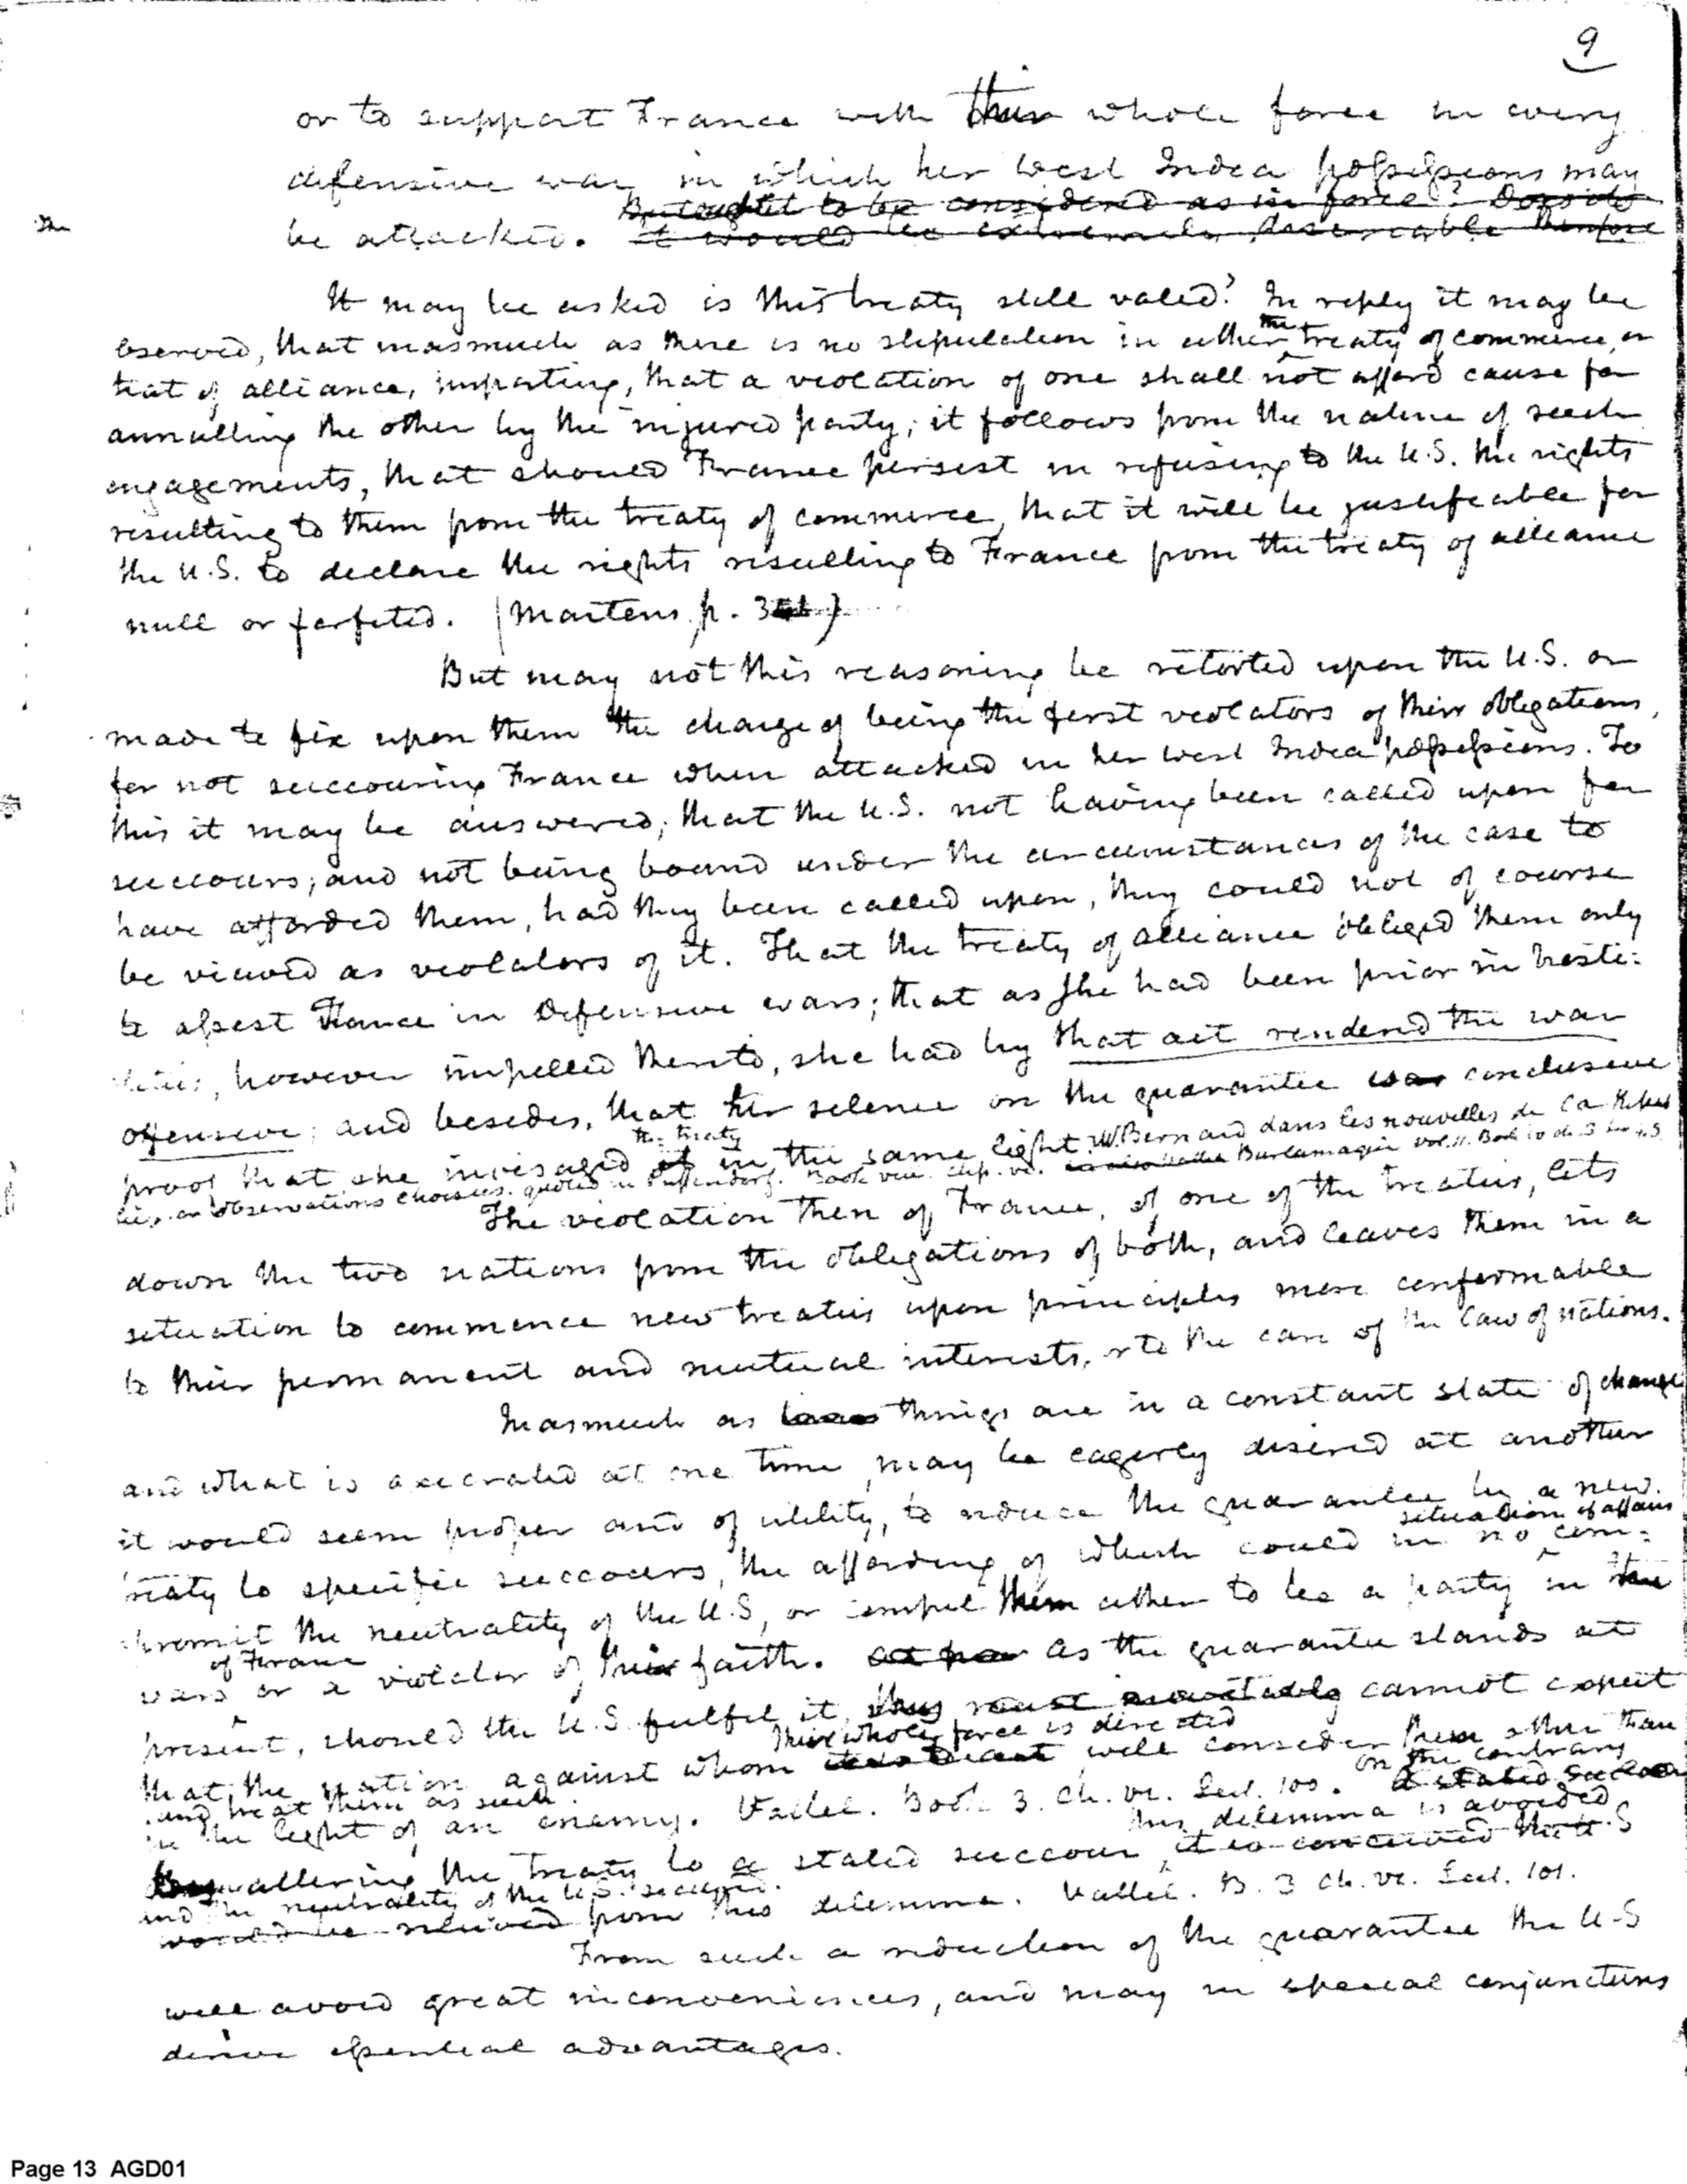 9
or to support France with their whole force in every
defensive war in which her West India possessions may
But ought it to be considered as in force? Douvids
be attacked. it would be extremely desireable therefore
It may be asked is this treaty still valid? In reply it may be
bserved, that inasmuch as there is no stipulation in either the treaty of commerce, or
that of alliance, importing, that a violation of one shall not afford cause for
annulling the other by the injured party; it follows from the nature of such
engagements, that should France persist in refusing to the U.S. the rights
resulting to them from the treaty of commerce, that it will be justifeable for
the U.S. to declare the rights resulting to France from the treaty of alliance
null or forfeted. (Martens p. 3
But may not this reasoning be retorted upon the U.S. or
made to fix upon them the charge of being the first violators of their obligations,
for not succouring France when attacked in her West India possessions. To
this it may be answered, that the U.S. not having been called upon for
succours; and not being bound under the circumstances of the case to
have afforded them, had they been called upon, they could not of course
be viewed as violators of it. That the treaty of alliance obliged them only
to assist France in defensive wars; that as she had been prior in hosti:
lities, however impelled thereto, she had by that act rendered the war
offensive; and besides, that her silence on the guarantee was conclusive
the treaty
proof that she invisaged it in the same light. W. Bernard dans les nouvelles de la Repub
lic, on observations choisies. quoted in Puffendorf. Book viii. chp. vi. Burlamaqui vol. 11. Book
The violation then of France, of one of the treaties, lets
down the two nations from the obligations of both, and leaves them in a
situation to commence new treaties upon principles more confermable
to their permanent and mutual interests, or to the care of the law of nations.
Inasmuch as things are in a constant state of change
and what is execrated at one time may be eagerly desired at another
it would seem proper and of utility, to reduce the guarantee by a new
situation of affairs
reaty to specific succours, the affording of which could in no com:
promit the neutrality of the U.S, or compel them either to be a party in the
of France
wars or a violater of their faith. as the guarantee stands at
present, should the U.S. fulfil it, they must inevitably cannot expect
their whole force is directed
that the nation against whom will consider them other than
and treat them as such on the contrary
in the light of an enemy. Vattel. Book 3. Ch. vi. Sect. 100. a stated succour
this dilemma is avoided
By altering the treaty to a stated succour, it is conceived the U.S
and the neutrality of the U.S. secured.
would be relieved from this dilemma. Vattel. B. 3 ch. vi. Sect. 101.
From such a reduction of the guarantee the U-S
will avoid great inconveniences, and may in special conjunctures
derive essential advantages.
Page 13 AGD01